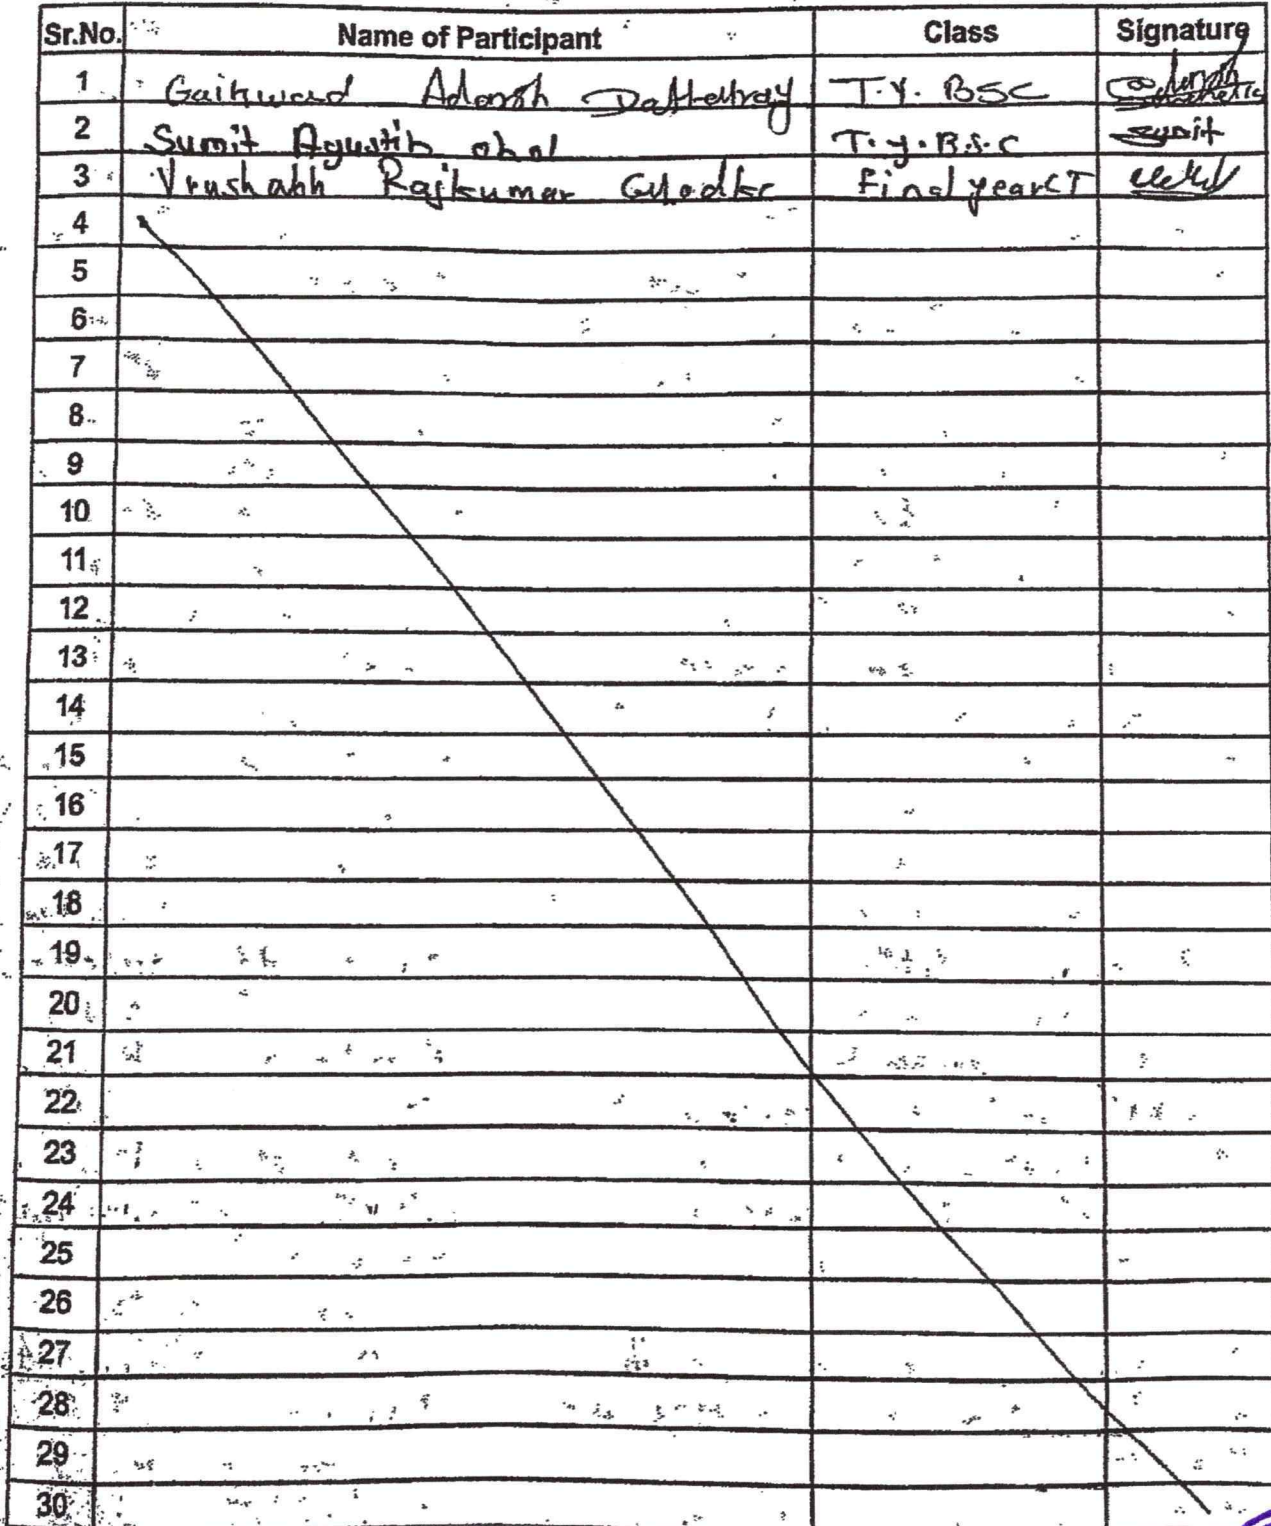 Sr.No. Name of Participant Class Signature
1 Gaikwad Adarsh Dattatray T.Y. BSC
2 Sumit Agustin ohol T.y.B.s.c Sumit
3 Vrushabh Rajkumar Ghodke Final year CT
4
5
6
7
8
9
10
11
12
13
14
15
16
17
18
19
20
21
22
23
24
25
26
27
28
29
30